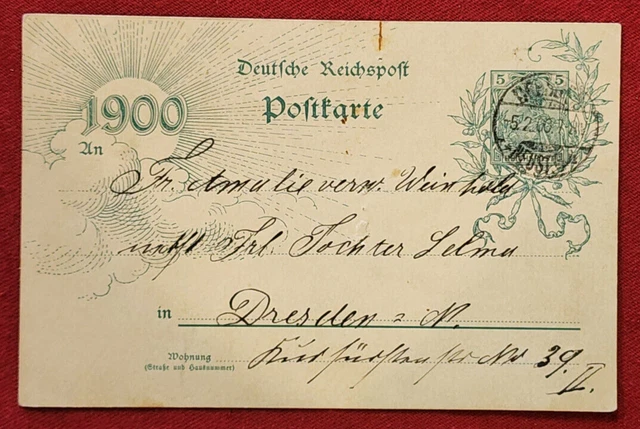 Deutsche Reichspost
Postkarte
5 5
1900
5.2.00
An
Fr. Amalie verw. Weinhold
nebst Frl. Tochter Selma
in Dresden = N.
Wohnung
(Straße und Hausnummer)
Kurfürstenstr No 39. II.